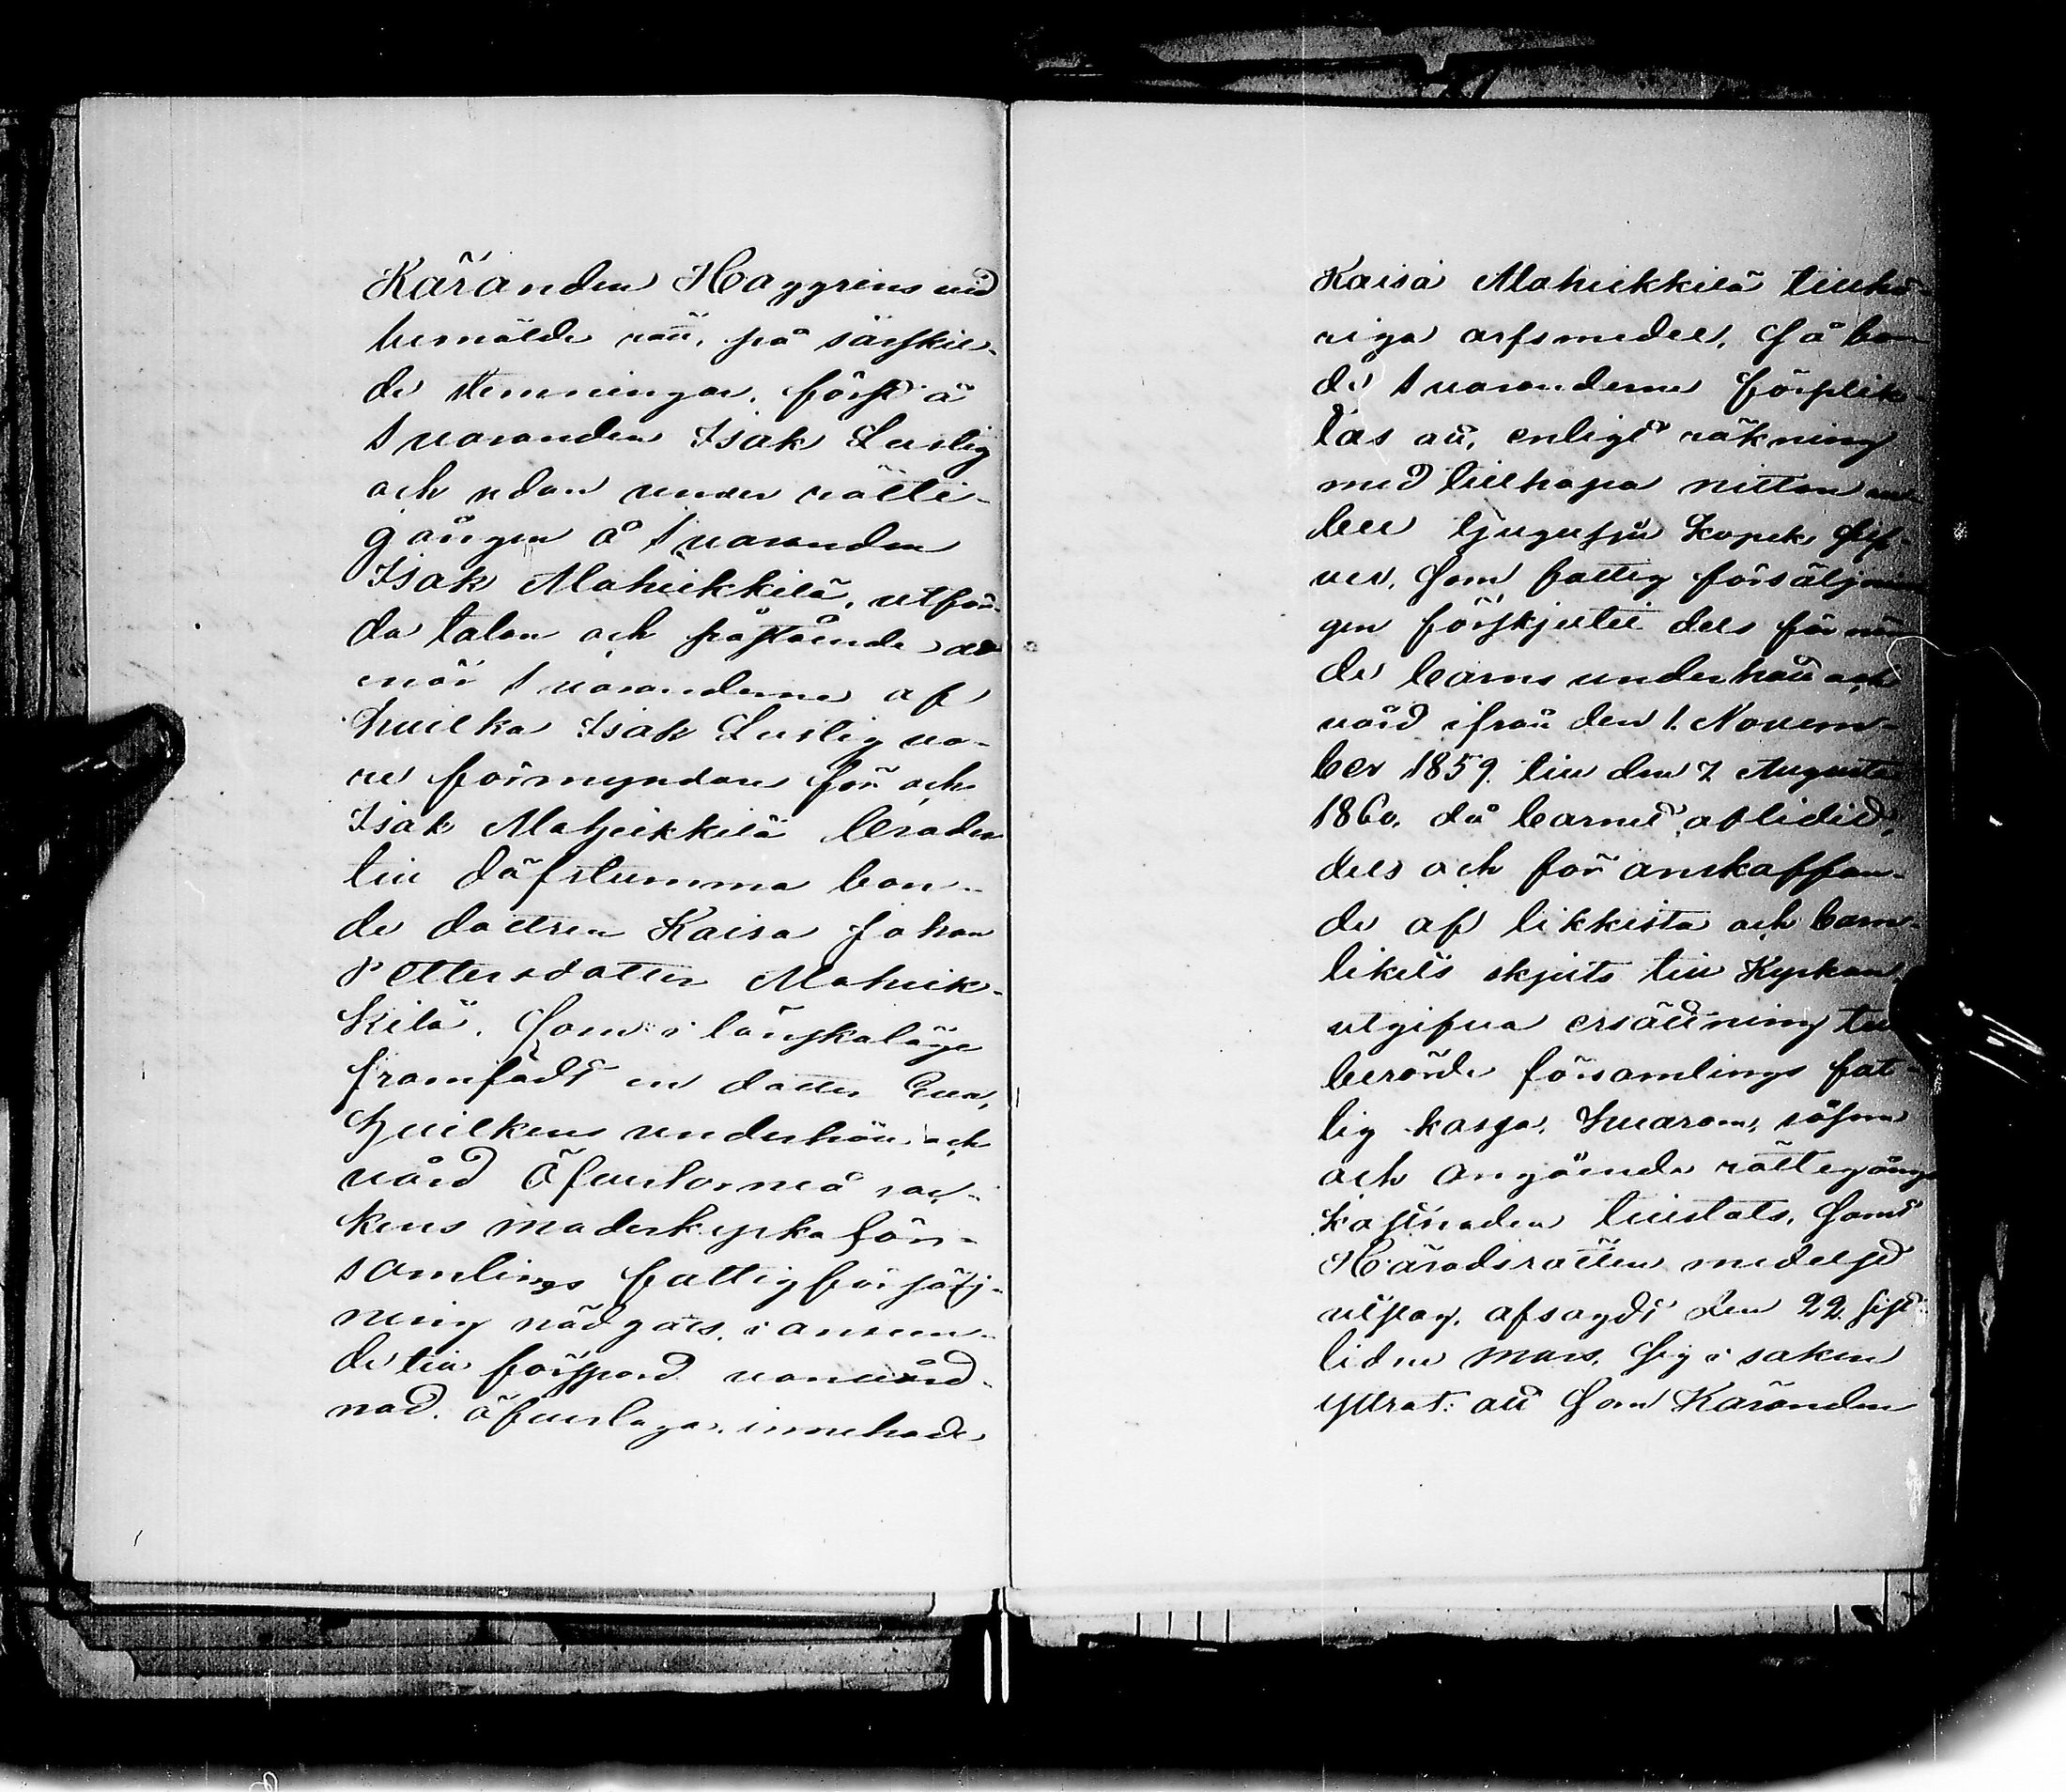 Käranden Haggrens vid
bemälde rätt, på särskil-
de stemningar, först å
Svaranden Isak Lustig
och sedan under rätte-
gången å Svaranden
Isak Mahuikkila, utför-
da talan och påstående
när Svaranderne af
hvilka Isak Lustig vo-
re förmyndare för och
Isak Mahuikkila broder
till döfstumma bon-
de dottren Kaisa Johan
Pettersdotter Mahuik-
kila, som i lönskaläge
framfödt en dotter Eva,
hvilkens underhåll och
vård Öfvertorneå soc-
kens moderkyrka för-
samlings fattigförsörj-
ning nödgats, i anseen-
de till försport vanvård-
nad öfvertaga, innehade
Kaisa Mahuikkila tillhö-
riga arfsmedel, så bor-
de Svaranderne förplik-
tas att, enligt räkning
med tillhopa nitton ru-
bel tjugusju kopek silf-
ver, som fattig försörjnin
gen förskjutit dels för nu
de barns underhåll och
vård ifrån den 1. Novem-
ber 1859 till den 7 Augusti
1860, då barnet aflidit,
dels och för anskaffan-
de af likkista och barn-
likets skjuts till Kyrkan,
utgifva ersättning till
berörde församlings fat-
tig kassa, hvarom, såsom
och angående rättegångs
kostnaden tvistats, samt
Häradsrätten medelst
utslag, afsagdt den 22. sist-
lidne Mars, sig i saken
yttrat: att som Käranden